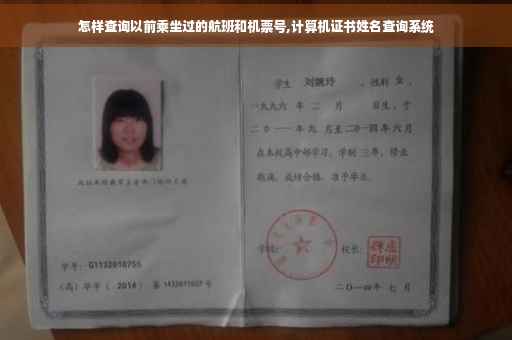 怎样查询以前乘坐过的航班和机票号,计算机证书姓名查询系统
学生 刘婉玲 ,性别 女 ,
一九九六 年 二 月 日生,于
二〇一一 年 九 月至 二〇一四 年 六 月
在本校高中部学习,学制 三 年,修业
期满,成绩合格,准予毕业。
学校: 校长:
学号: G1132010755
(高)毕字( 2014 )第 1432011027 号
二〇一四 年 七 月